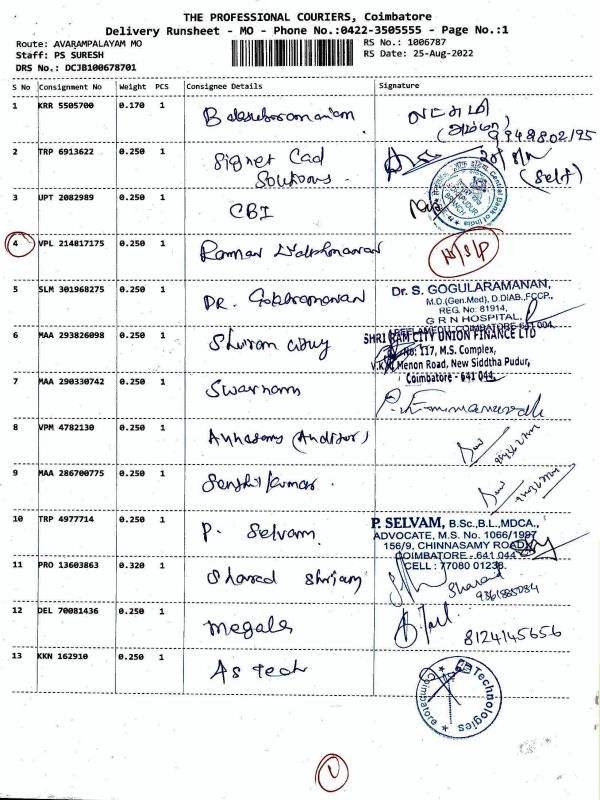 THE PROFESSIONAL COURIERS, Coimbatore
Delivery Runsheet - MO - Phone No.:0422-3505555 - Page No.:1
Route: AVARAMPALAYAM MO
Staff: PS SURESH
DRS No.: DCJB100678701
RS No.: 1006787
RS Date: 25-Aug-2022
S No Consignment No Weight PCS Consignee Details Signature
1 KRR 5505700 0.170 1 Balasubramaniam
(அம்மா)
9994880 2195
2 TRP 6913622 0.250 1 Signet Cad
Solutions.
(Self)
Central Bank of India
3 UPT 2082989 0.250 1 CBI
4 VPL 214817175 0.250 1 Raman Lakshmanan
H/S/P
5 SLM 301968275 0.250 1 DR. Gokularamanan
Dr. S. GOGULARAMANAN,
M.D.(Gen.Med), D.DIAB.,FCCP.,
REG. No: 81914,
G R N HOSPITAL,
PEELAMEDU, COIMBATORE-641 004.
6 MAA 293826098 0.250 1 Shriram city
SHRI RAM CITY UNION FINANCE LTD
No: 117, M.S. Complex,
V.K.K. Menon Road, New Siddtha Pudur,
Coimbatore - 641 044.
7 MAA 290330742 0.250 1 Swarnam
8 VPM 4782130 0.250 1 Annasamy (Auditor)
9 MAA 286700775 0.250 1 Senthil kumar
10 TRP 4977714 0.250 1 P. Selvam
P. SELVAM, B.Sc.,B.L.,MDCA.,
ADVOCATE, M.S. No. 1066/1997
156/9, CHINNASAMY ROAD,
COIMBATORE - 641 044
CELL : 77080 01238.
11 PRO 13603863 0.320 1 Sharad Shriam
Sharad
9361885084
12 DEL 70081436 0.250 1 Megala
8124145656
13 KKN 162910 0.250 1 As Tech
Technologies
Coimbatore